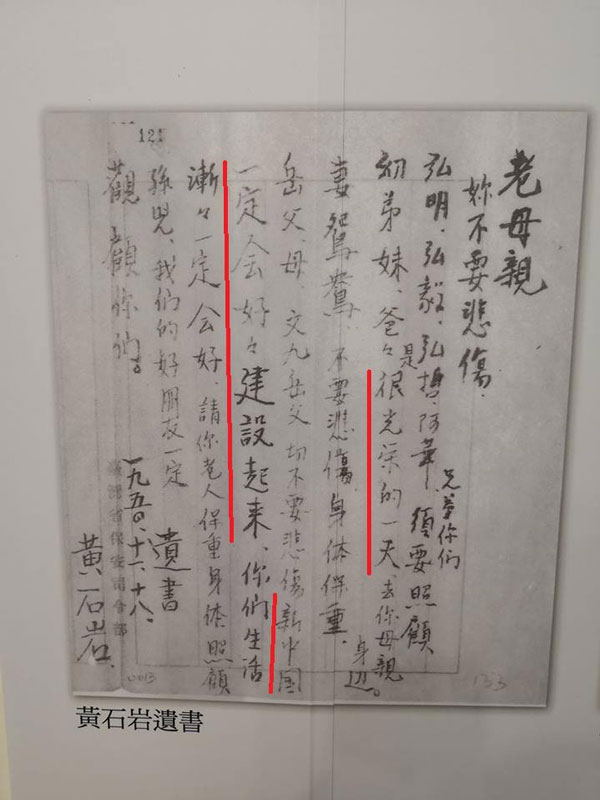 121
老母親
妳不要悲傷.
弘明.弘毅.弘哲.阿華 兄弟你們須要照顧
幼弟妹、爸々是很光荣的一天、去你母親身边。
妻鴛鴦.不要悲傷.身体保重.
岳父.母.文九岳父切不要悲傷新中国
一定会好々建設起来、你們生活
漸々一定会好.請你老人保重身体.照顧
孫児、我们的好朋友一定
觀顧你们。
遺書
一九五〇、十一、十八、
黃石岩.
台灣省保安司令部
0013
133
黃石岩遺書